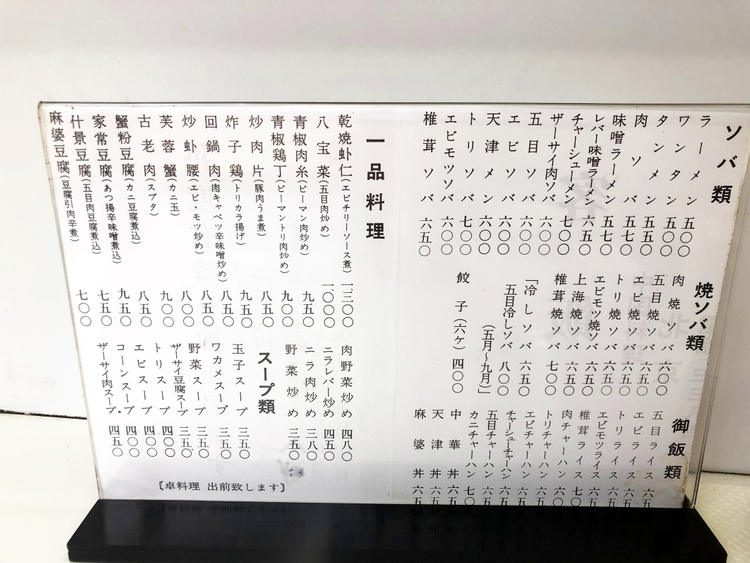 ソバ類
ラーメン 五〇〇
ワンタン 五〇〇
タンメン 五五〇
肉ソバ 五七〇
味噌ラーメン 五七〇
レバー味噌ラーメン 六五〇
チャーシューメン 七〇〇
ザーサイ肉ソバ 六〇〇
五目ソバ 六〇〇
エビソバ 六〇〇
天津メン 六〇〇
トリソバ 七〇〇
エビモツソバ 六〇〇
椎茸ソバ 六五〇
焼ソバ類
肉焼ソバ 六〇〇
五目焼ソバ 六五〇
エビ焼ソバ 六五〇
トリ焼ソバ 六五〇
エビモツ焼ソバ 六五〇
上海焼ソバ 六五〇
椎茸焼ソバ 七〇〇
「冷しソバ 六五〇
五目冷しソバ 八〇〇
(五月〜九月)」
餃子(六ヶ) 四〇〇
御飯類
五目ライス 六五
エビライス 六五
トリライス 六五
エビモツライス 六五
椎茸ライス 七〇
肉チャーハン 六〇
トリチャーハン 六五
エビチャーハン 六五
チャーシューチャーハン 六五
五目チャーハン 六五
カニチャーハン 七〇
中華丼 六五
天津丼 六五
麻婆丼 六五
一品料理
乾焼虾仁(エビチリーソース煮) 一三〇〇
八宝菜(五目肉炒め) 一〇〇〇
青椒肉糸(ピーマン肉炒め) 九五〇
青椒鶏丁(ピーマントリ肉炒め) 九〇〇
炒肉片(豚肉うま煮) 八五〇
炸子鶏(トリカラ揚げ) 九五〇
回鍋肉(肉キャベツ辛味噌炒め) 八五〇
炒虾腰(エビ・モツ炒め) 八五〇
芙蓉蟹(カニ玉) 八〇〇
古老肉(スブタ) 九〇〇
蟹粉豆腐(カニ豆腐煮込) 八五〇
家常豆腐(あつ揚辛味噌煮込) 九五〇
什景豆腐(五目肉豆腐煮込) 七五〇
麻婆豆腐(豆腐引肉辛煮) 七〇〇
肉野菜炒め 四八〇
ニラレバー炒め 四五〇
ニラ肉炒め 三八〇
野菜炒め 三五〇
スープ類
玉子スープ 三五〇
ワカメスープ 三五〇
野菜スープ 三五〇
ザーサイ豆腐スープ 三五〇
トリスープ 四〇〇
エビスープ 四〇〇
コーンスープ 四五〇
ザーサイ肉スープ 四五〇
〔卓料理 出前致します〕